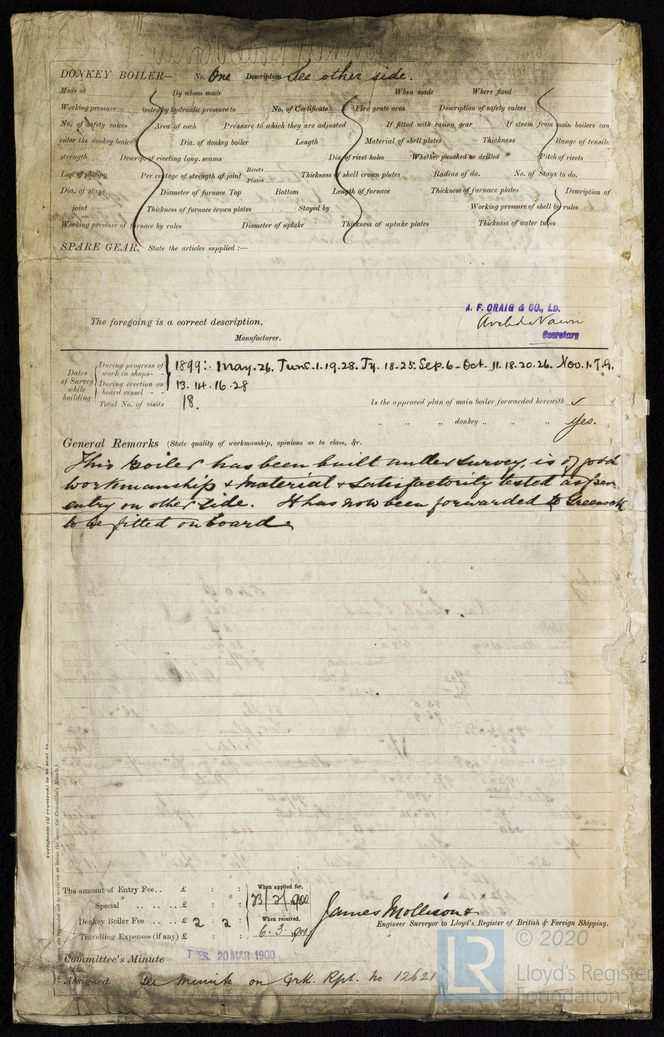 DONKEY BOILER— No. One Description See other side.
Made at By whom made When made Where fixed
Working pressure tested by hydraulic pressure to No. of Certificate Fire grate area Description of safety valves
No. of safety valves Area of each Pressure to which they are adjusted If fitted with easing gear If steam from main boilers can
enter the donkey boiler Dia. of donkey boiler Length Material of shell plates Thickness Range of tensile
strength Descrip. of riveting long. seams Dia. of rivet holes Whether punched or drilled Pitch of rivets
Lap of plating Per centage of strength of joint Rivets Plates Thickness of shell crown plates Radius of do. No. of Stays to do.
Dia. of stays Diameter of furnace Top Bottom Length of furnace Thickness of furnace plates Description of
joint Thickness of furnace crown plates Stayed by Working pressure of shell by rules
Working pressure of furnace by rules Diameter of uptake Thickness of uptake plates Thickness of water tubes
SPARE GEAR. State the articles supplied:—
A. F. CRAIG & CO., LD.
The foregoing is a correct description,
Secretary
Manufacturer.
Dates of Survey while building
During progress of work in shops - - 1899: May. 26. June. 1. 19. 28. Jy. 18. 25. Sep. 6 - Oct. 11. 18. 20. 26. Nov. 1. 7. 9.
During erection on board vessel - - 13. 14. 16. 28
Total No. of visits 18. Is the approved plan of main boiler forwarded herewith ✓
" " " donkey " " " Yes.
General Remarks (State quality of workmanship, opinions as to class, &c.
This Boiler has been built under survey, is of good
workmanship & material & satisfactorily tested as per
entry on other side. It has now been forwarded to Greenock
to be fitted on board.
Certificate (if required) to be sent to
The amount of Entry Fee . . £ : : When applied for,
Special . . . . £ : : 23/2/1900
Donkey Boiler Fee . . . £ 2 : 2 : When received,
Travelling Expenses (if any) £ : : 6. 3. 1900
James Mollison
Engineer Surveyor to Lloyd's Register of British & Foreign Shipping.
Committee's Minute TUES. 20 MAR 1900
Assigned See minute on Grk. Rpt. no 12621
LR © 2020
Lloyd's Register
Foundation